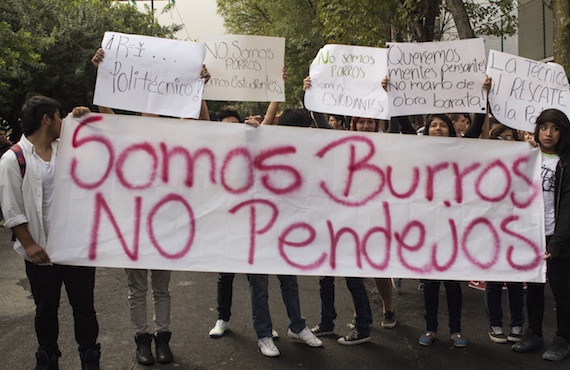 ¡R
Politécnico!
No somos
PORROS
Somos Estudiantes
No somos
PORROS
Somos
ESTUDIANTES
Queremos
mentes Pensantes
No mano de
obra barata
La Técnica
al RESCATE
de la Pa
Somos Burros
NO Pendejos.